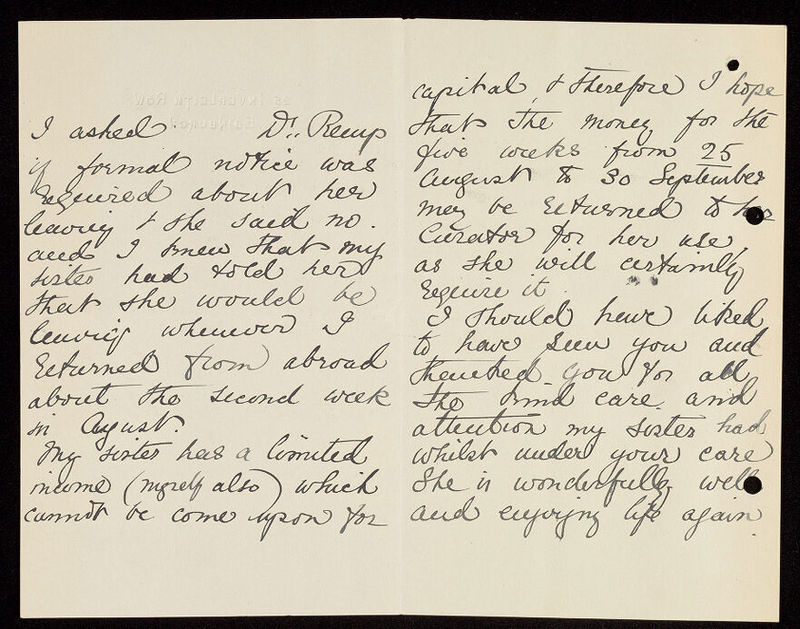 I asked Dr. Kemp
if formal notice was
required about her
leaving & she said no.
and I knew that my
sister had told her
that she would be
leaving whenever I
returned from abroad
about the second week
in August.
My sister has a limited
income (myself also) which
cannot be come upon for
capital, & therefore I hope
that the money for the
five weeks from 25
August to 30 September
may be returned to her
Curator for her use,
as she will certainly
require it.
I should have liked
to have seen you and
thanked you for all
the kind care and
attention my sister had
whilst under your care
She is wonderfully well
and enjoying life again